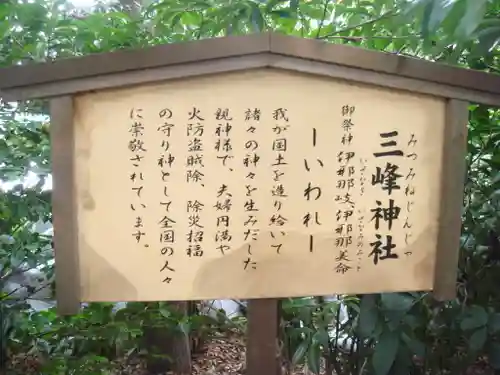 三峰神社
みつみねじんじゃ
御祭神 伊那那岐、伊那那美命
いざなぎ いざなみのみこと
ーいわれー
我が国土を造り給いて
諸々の神々を生みだした
親神様で、夫婦円満や
火防盗賊除、除災招福
の守り神として全国の人々
に崇敬されています。